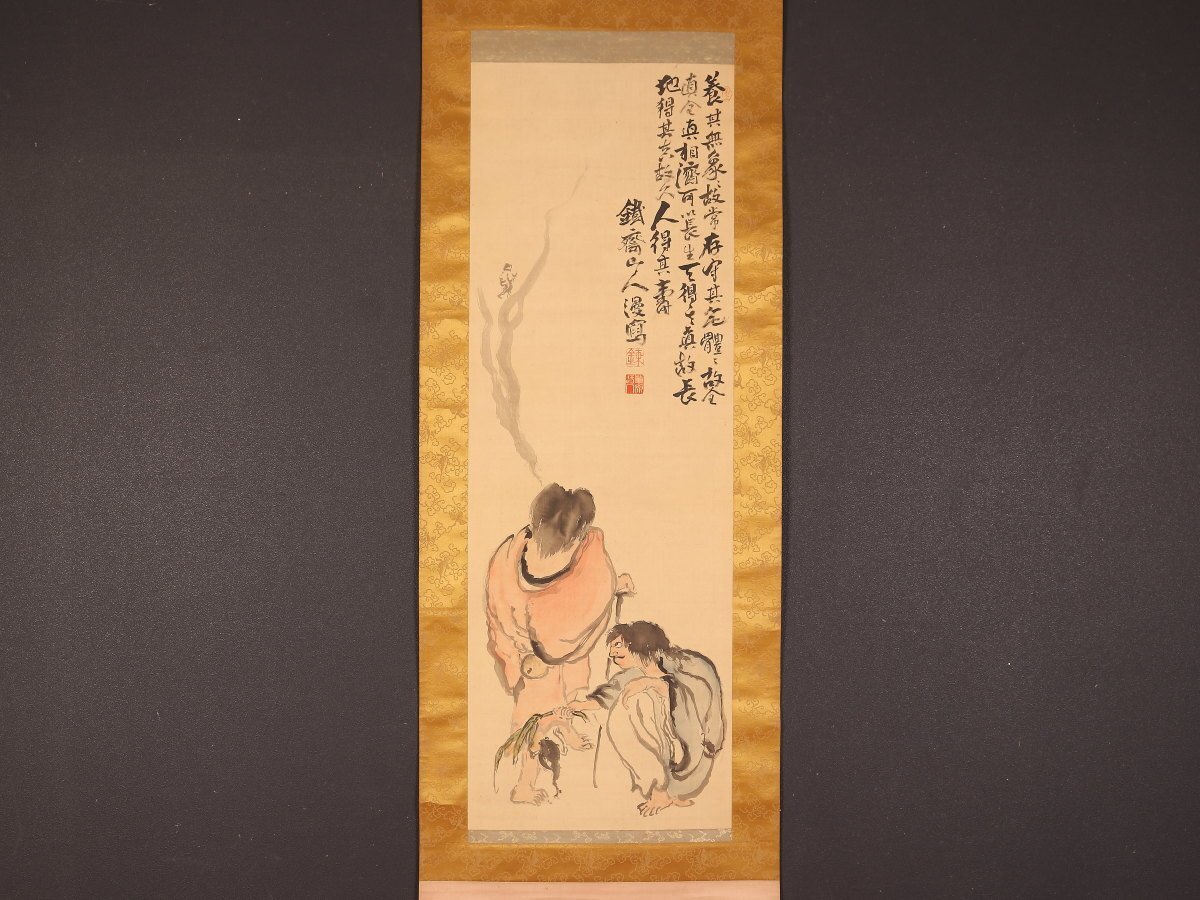 養其無象〻故常存守其无體〻故全
真全真相濟可以長生天得其真故長
地得其真故久人得其壽
鐵齋山人漫寫